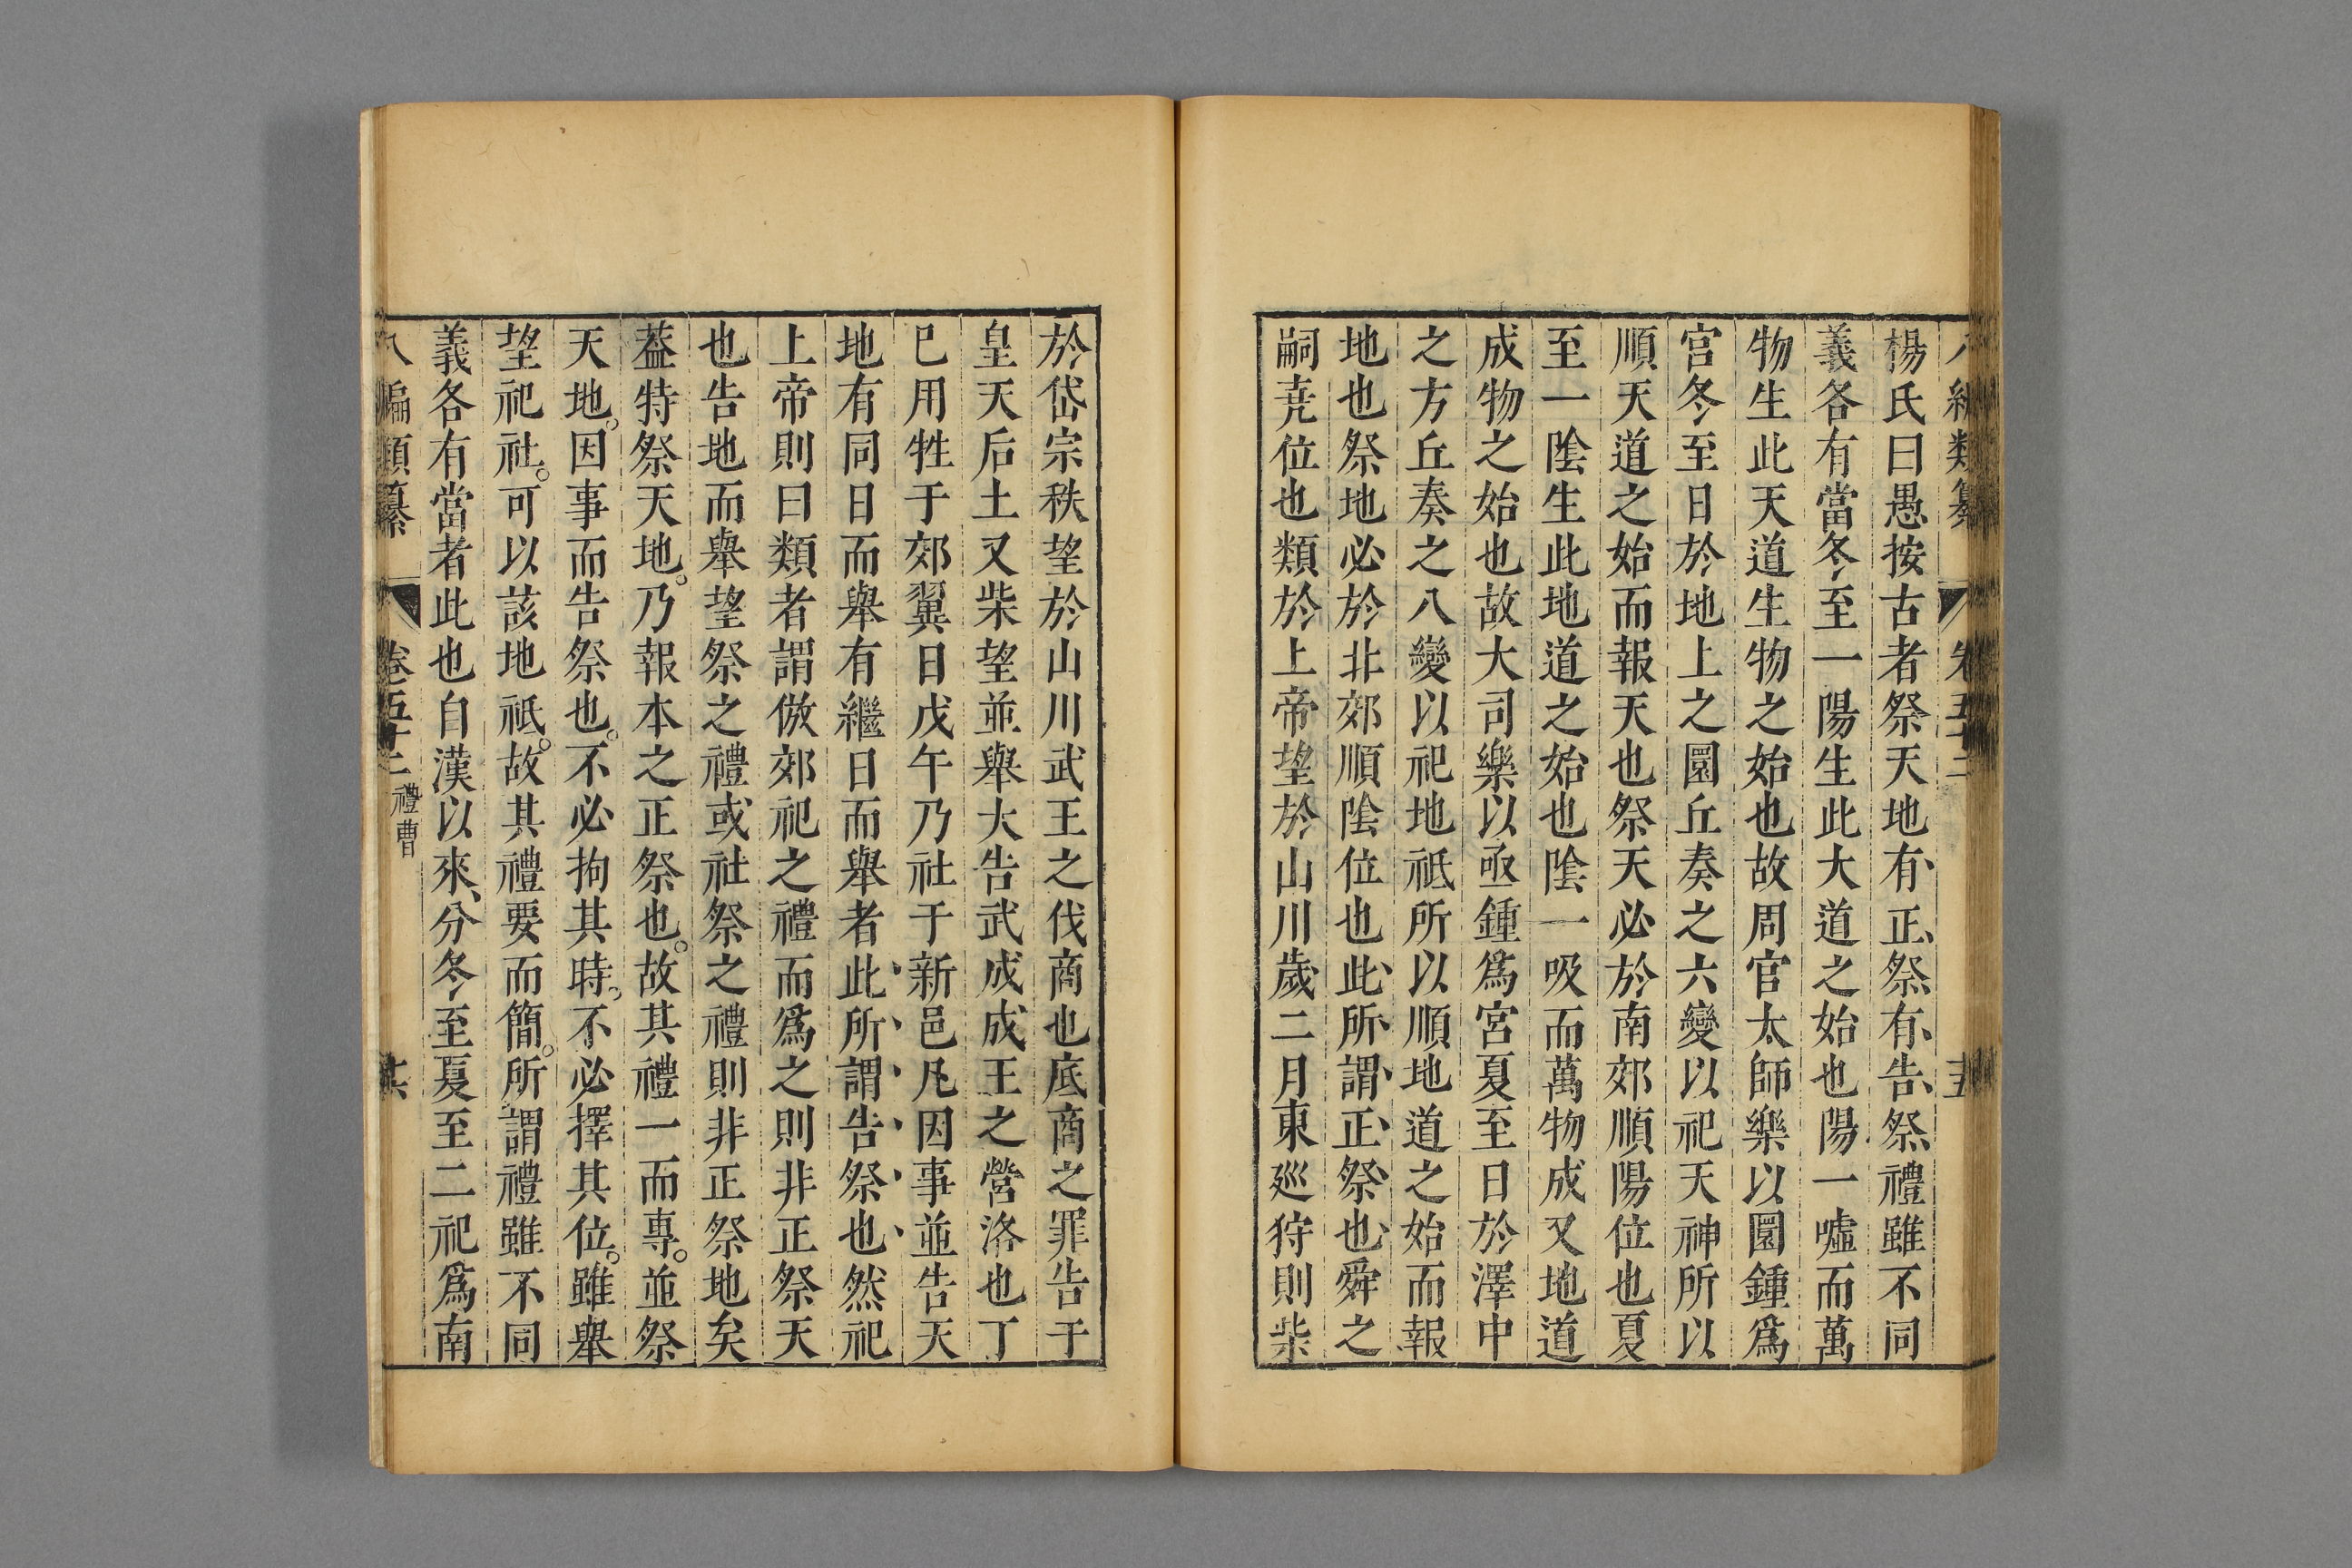 八編類纂 卷五十二 十五
楊氏曰愚按古者祭天地有正祭有告祭禮雖不同
義各有當冬至一陽生此大道之始也陽一噓而萬
物生此天道生物之始也故周官太師樂以圜鍾爲
宫冬至日於地上之圜丘奏之六變以祀天神所以
順天道之始而報天也祭天必於南郊順陽位也夏
至一陰生此地道之始也陰一吸而萬物成又地道
成物之始也故大司樂以亟鍾爲宮夏至日於澤中
之方丘奏之八變以祀地祗所以順地道之始而報
地也祭地必於北郊順陰位也此所謂正祭也舜之
嗣堯位也類於上帝望於山川歲二月東廵狩則柴
於岱宗秩望於山川武王之伐商也底商之罪告于
皇天后土又柴望並舉大告武成成王之營洛也丁
巳用牲于郊翼日戊午乃社于新邑凡因事並告天
地有同日而舉有繼日而舉者此所謂告祭也然祀
上帝則曰類者謂倣郊祀之禮而爲之則非正祭天
也告地而舉望祭之禮或社祭之禮則非正祭地矣
葢特祭天地。乃報本之正祭也。故其禮一而專。並祭
天地。因事而告祭也。不必拘其時。不必擇其位。雖舉
望祀社。可以該地祗。故其禮要而簡。所謂禮雖不同
義各有當者此也自漢以來、分冬至夏至二祀爲南
八編類纂 卷五十二 禮曹 十六